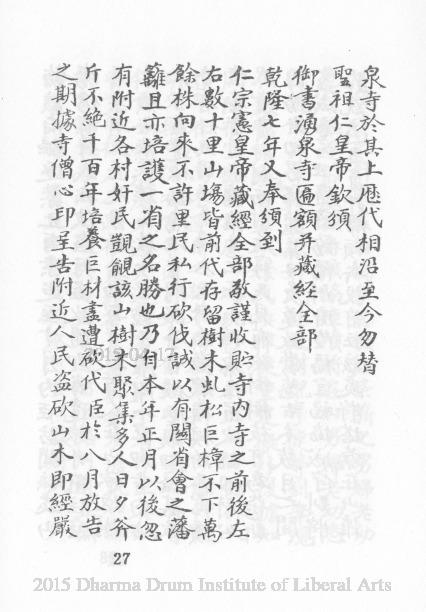 泉寺於其上歷代相沿至今勿替
聖祖仁皇帝欽頒
御書湧泉寺匾額并藏經全部
乾隆七年又奉頒到
仁宗憲皇帝藏經全部敬謹收貯寺內寺之前後左
右數十里山塲皆前代存留樹木虬松巨樟不下萬
餘株向來不許里民私行砍伐誠以有關省會之藩
籬且亦培護一省之名勝也乃自本年正月以後忽
有附近各村奸民覬覦該山樹木聚集多人日夕斧
斤不絕千百年培養巨材盡遭砍伐臣於八月放告
之期據寺僧心印呈告附近人民盜砍山木即經嚴
27
2015 Dharma Drum Institute of Liberal Arts